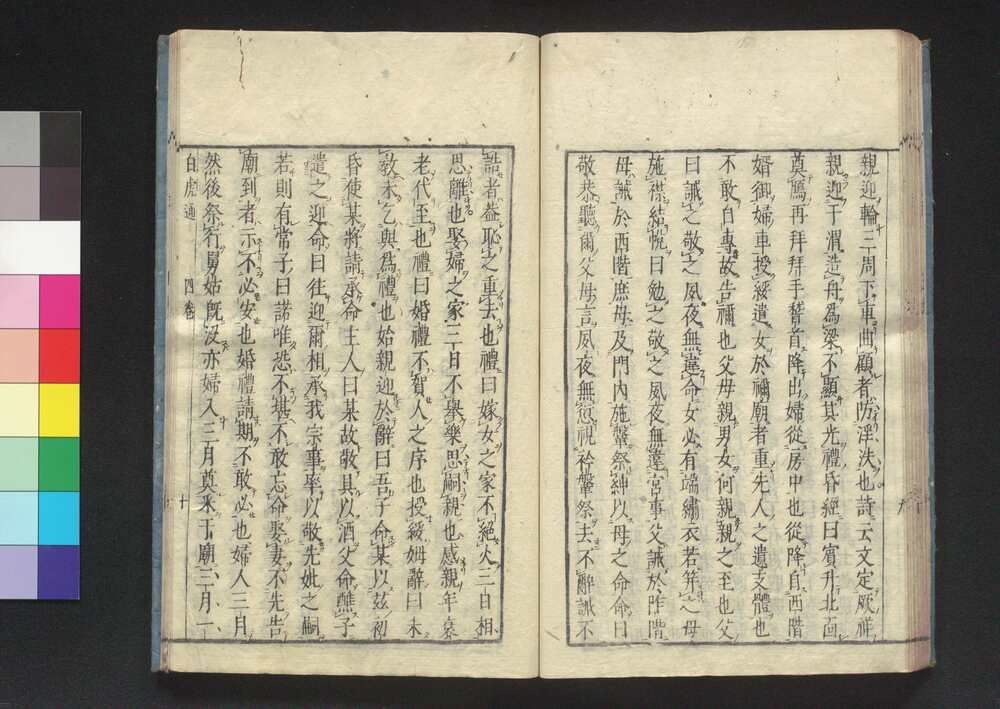 親迎輪三周下車曲顧者防淫泆也詩云文定厥祥
親迎于渭造舟為梁不顯其光禮昏經曰賓升北面
奠鴈再拜拜手稽首降出婦從房中也從降自西階
婿御婦車授綏遣女於禰廟者重先人之遺支體也
不敢自專故告禰也父母親男女何親親之至也父
曰誡之敬之夙夜無違命女必有端繡衣若笄之母
施襟結帨曰勉之敬之夙夜無違宮事父誡於阼階
母誡於西階庶母及門內施鞶祭紳以母之命命曰
敬恭聽爾父母言夙夜無愆視衿鞶祭去不辭誡不
誥者葢恥之重去也禮曰嫁女之家不絕火三日相
思離也娶婦之家三日不舉樂思嗣親也感親年衰
老代至也禮曰婚禮不賀人之序也授綏姆辭曰未
教未乞與為禮也始親迎於辭曰吾子命某以玆初
昏使某將請承命主人曰某故敬具以酒父命醮子
遣之迎命曰往迎爾相承我宗事率以敬先妣之嗣
若則有常子曰諾唯恐不堪不敢忘命娶妻不先告
廟到者示不必安也婚禮請期不敢必也婦人三月
然後祭行舅姑既沒亦婦入三月奠采于廟三月一
白虎通 四卷 十